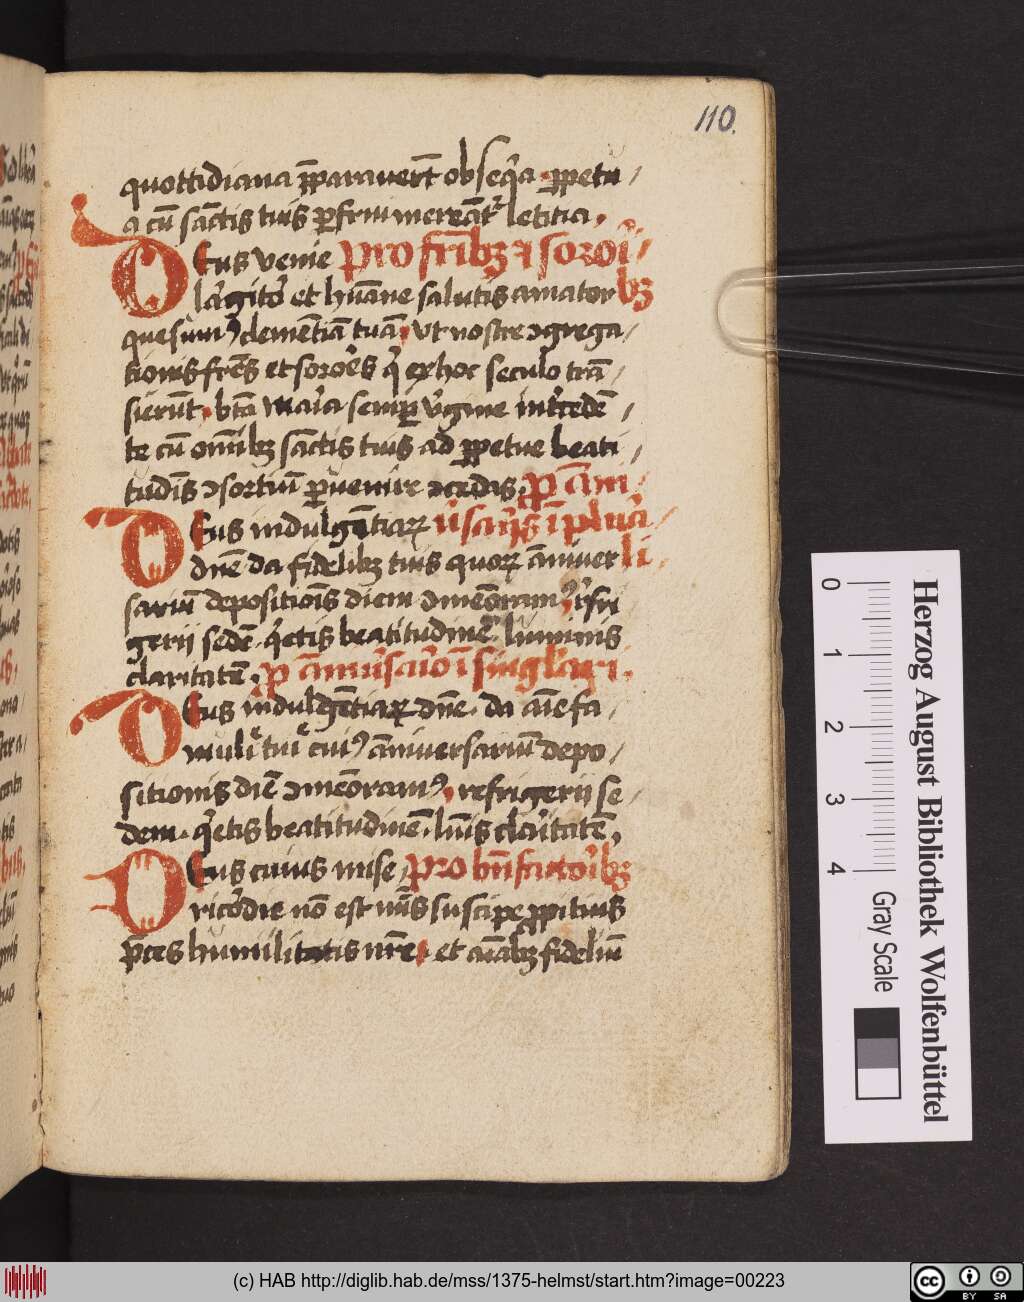 110.
quottidiana p̄parauert̄ obseq̄a · ꝑpetu /
a cū sāctis tuis ꝑfrui mereāt᷑ letitia .
Deus venie pro fr̄ibꝫ ⁊ soroꝛi /
largitoꝛ et hūane salutis amator bꝫ
quesumꝰ clemētiā tuā , vt nostre ↄgrega /
tionis fr̄es et soroēs q̄ ex hoc seculo trā /
sierūt , bt̄a maria semꝑ v̄gine int̄cedē /
te cū om̄ibꝫ sāctis tuis ad ꝑpetue beati /
tudīs ↄsortiū ꝑuenire ↄcedas . p̄ āni /
Deus indulgētiaꝝ u̓sarijs ī pluͣ /
dn̄e da fidelibꝫ tuis quoꝝ āniuer li
sariū depositiōis diem ↄmēoramꝰ , r̄fri
gerij sedē · q̄etis beatitudinē · luminis
claritatē . p̄ ān̄iu̓sario ī singlari .
Deus indulgētiaꝝ dn̄e · da aīe fa /
muli tui cuiꝰ āniuersariū depo /
sitionis diē ↄmēoramꝰ , refrigerij se /
dem · q̄etis beatitudinē · luīs claritatē .
Deus cuius mise / pro bn̄factoribꝫ
ricordie nō est nūs suscipe ꝓpitius
p̄ces humilitatis nr̄e , et aīabꝫ fideliū
Herzog August Bibliothek Wolfenbüttel
0 1 2 3 4
Gray Scale
(c) HAB http://diglib.hab.de/mss/1375-helmst/start.htm?image=00223
cc BY SA